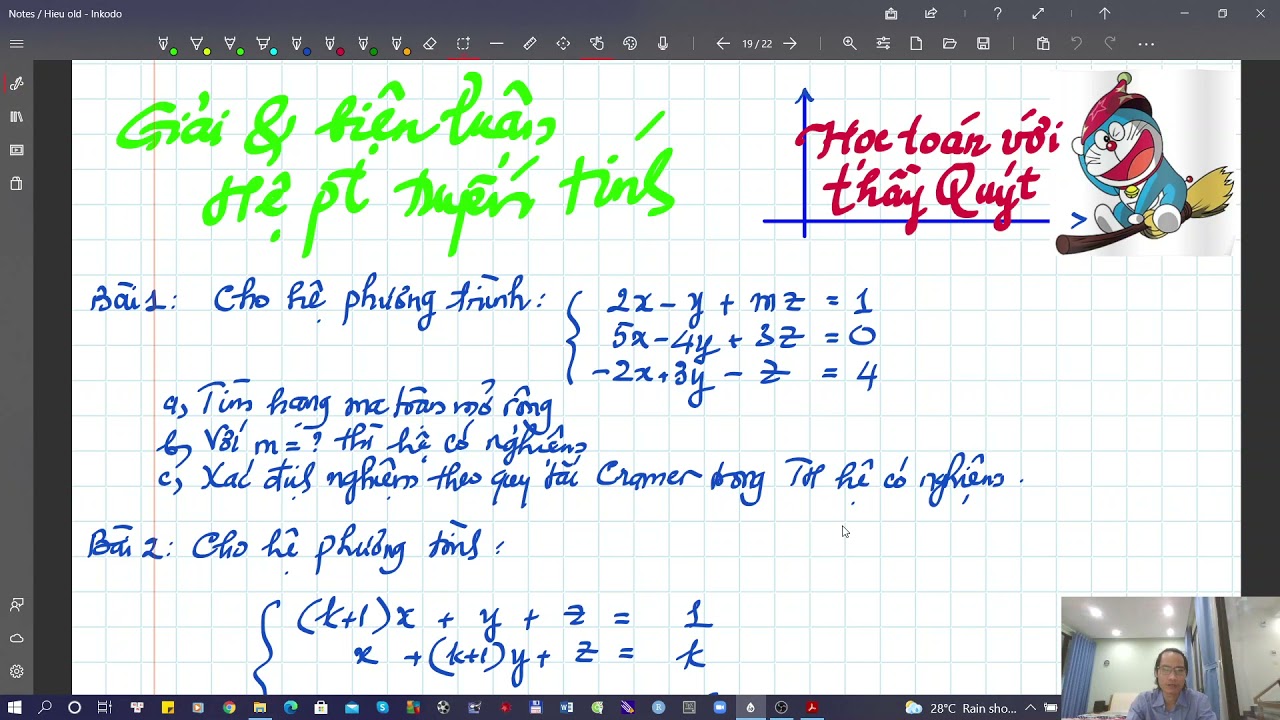 Notes / Hieu old - Inkodo
19 / 22
Giải & biện luận
Hệ pt tuyến tính
Học toán với
thầy Quýt
Bài 1: Cho hệ phương trình:
2x - y + mz = 1
5x - 4y + 3z = 0
-2x + 3y - z = 4
a, Tìm hạng ma trận mở rộng
b, Với m = ? thì hệ có nghiệm
c, Xác định nghiệm theo quy tắc Cramer trong TH hệ có nghiệm.
Bài 2: Cho hệ phương trình:
(k+1)x + y + z = 1
x + (k+1)y + z = k
28°C Rain sho...